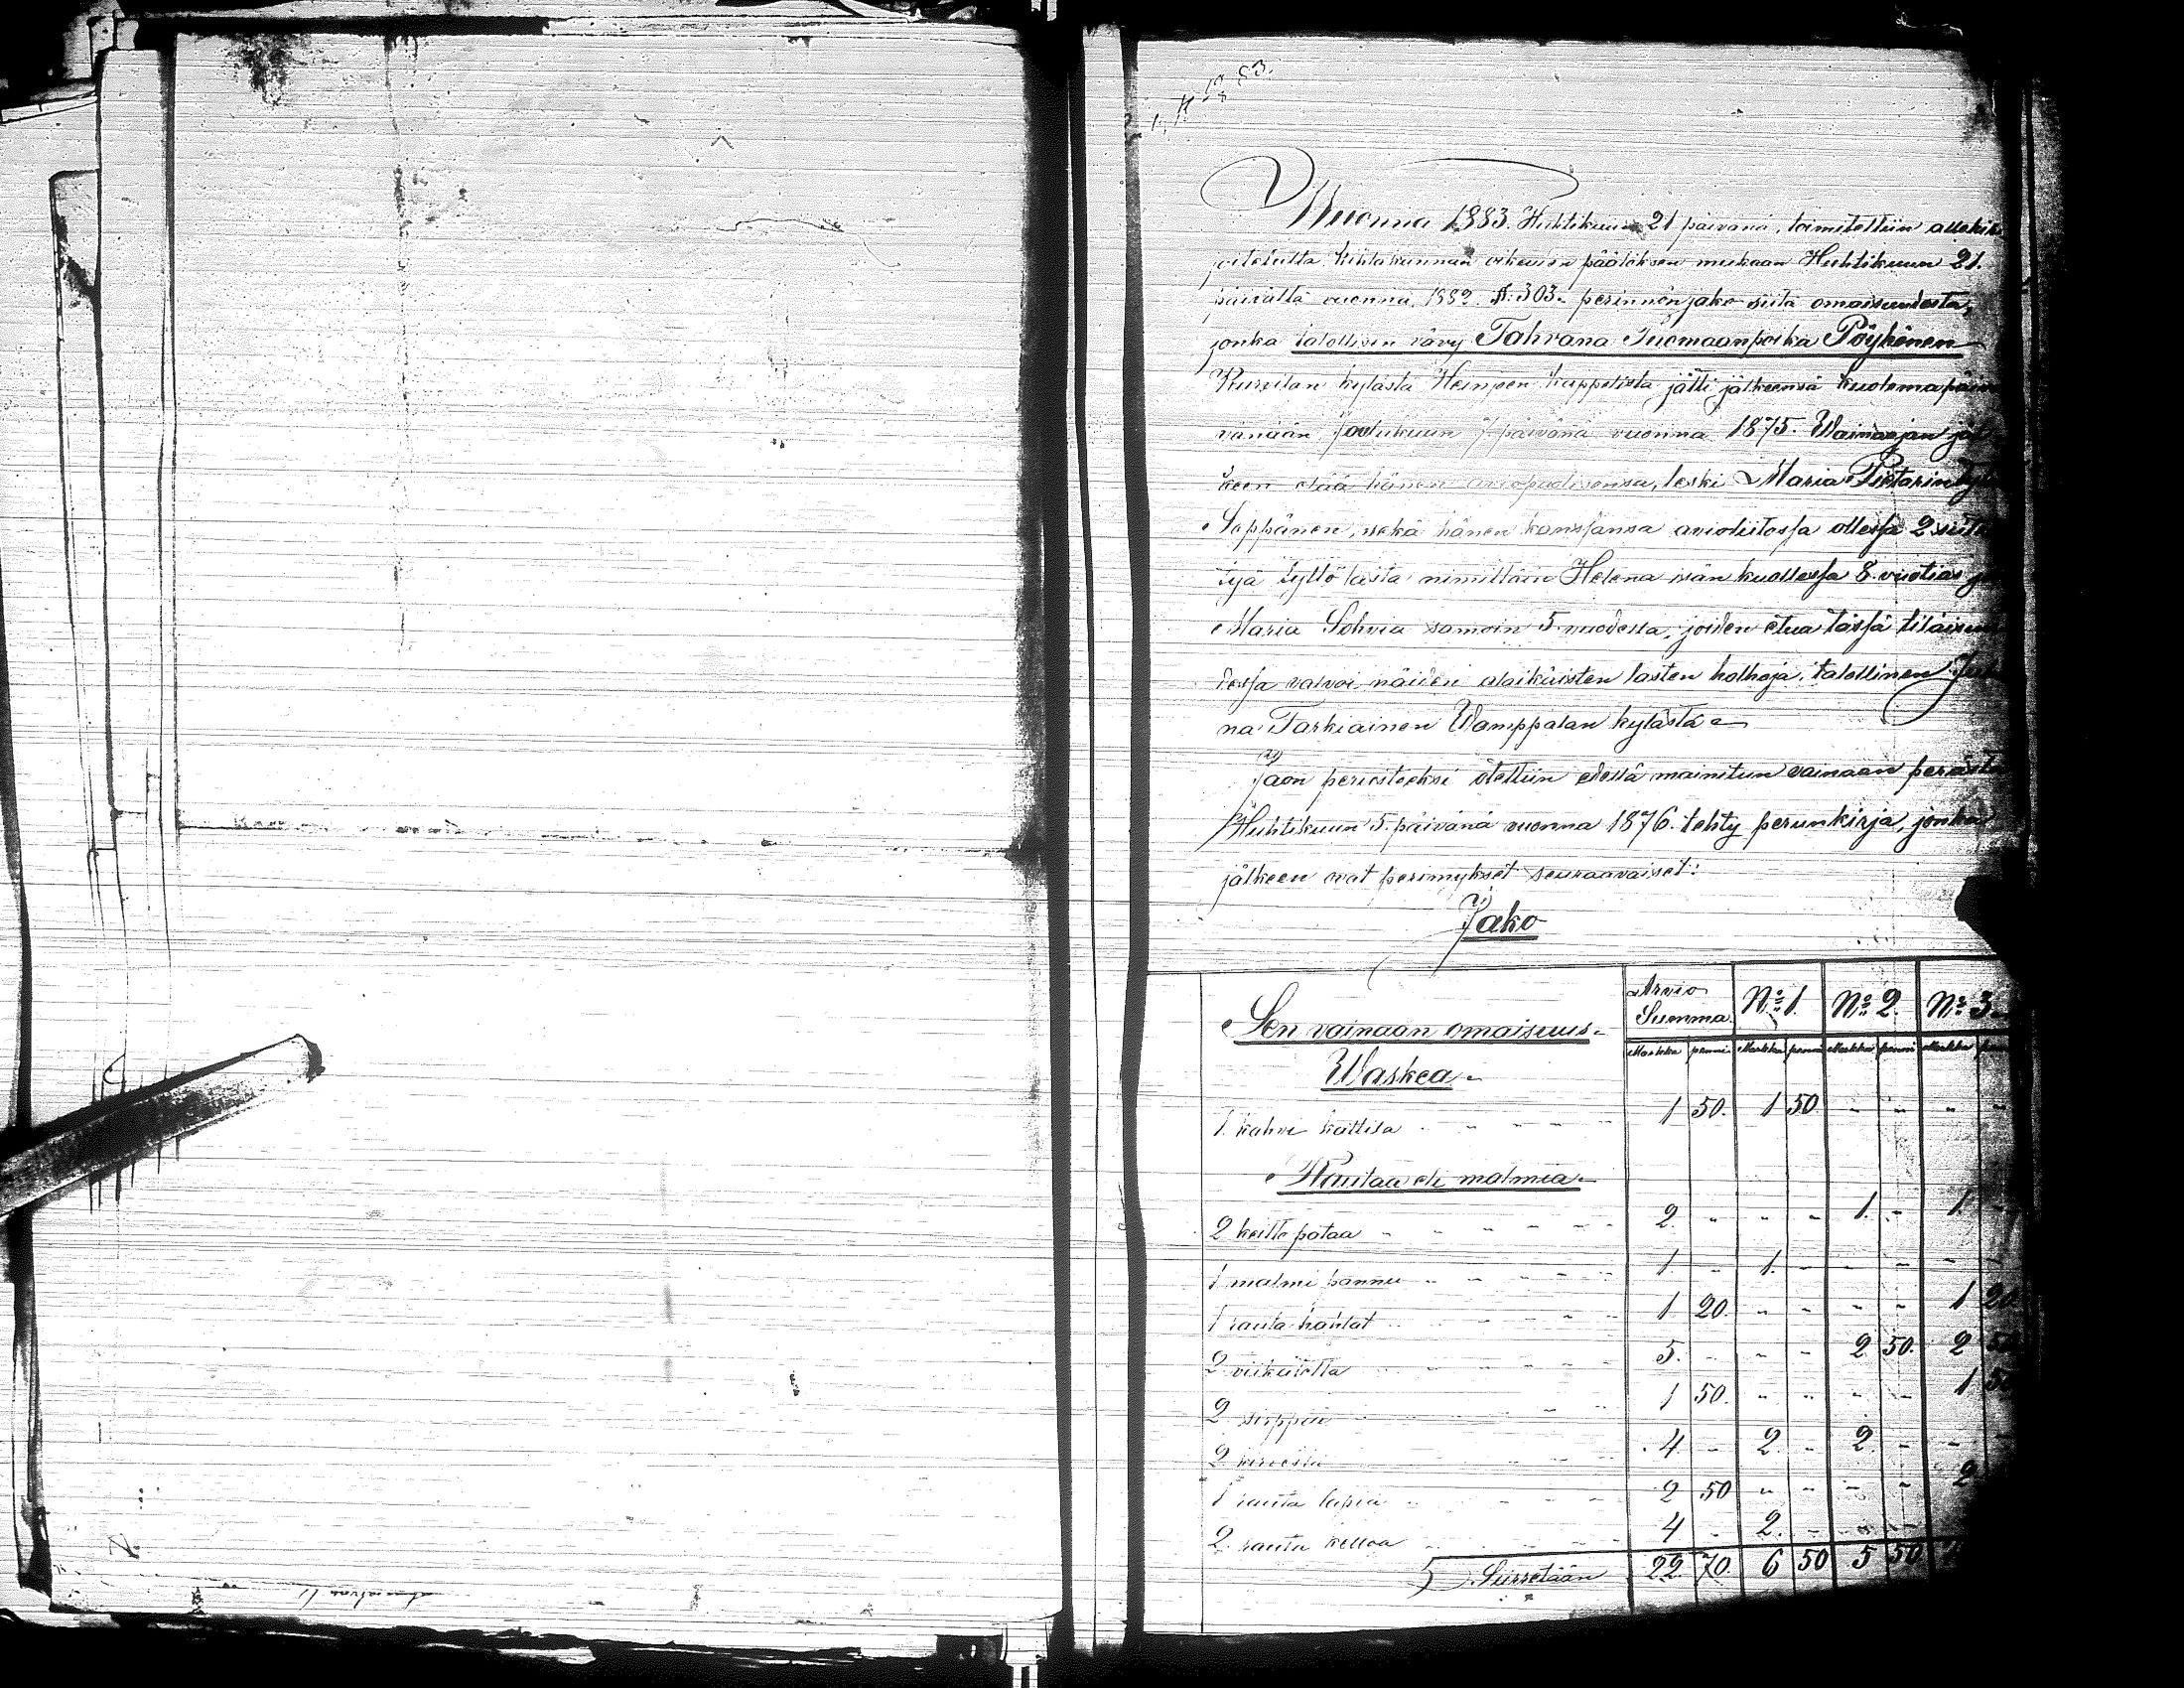 Wuonna 1883. Huhtikuun 21 päivänä, toimitettiin allekir
joitetulta kihlakunnan oikeuden päätöksen mukaan Huhtikuun 21.
päivältä vuonna 1882 §. 303. perinnön jako siitä omaisuudesta,
jonka talollisen vävy Tahvana Tuomaanpoika Pöyhönen
kylästä Heinjoen kappelista jätti jälkeensä kuolemapäi
vänään Joulukuun 7 päivänä vuonna 1875. Wainaajan jäl
keen elää hänen aviopuolisonsa, leski Maria Pietarin
Seppänen, sekä hänen kanssansa avioliitossa ollessa 2 siite
tyä tyttö lasta nimittäin Helena isän kuollessa 8. vuotias ja
Maria Sohvia samoin 5 vuodessa, joiden etua tässä tilaisuu
dessa valvoi näiden alaikäisten lasten holhoja, talollinen Juha
na Tarkiainen Wamppalan kylästä
Jaon perusteeksi otettiin edellä mainitun vainaan perästä
Huhtikuun 5. päivänä vuonna 1876. tehty perunkirja, jonka
jälkeen ovat perimykset seuraavaiset:
Jako
Sen vainaan omaisuus. Arvio Summa. No 1. No 2. No 3.
Markka penni Markka penni Markka penni Markka
Waskea.
1. kahvi kattila 1 50. 1 50 - - - -
Rautaa eli malmia.
2 keitto pataa 2. - - - 1. - 1
1 malmi pannu 1. - 1. - - - -
1 rauta hankat 1 20. - - - - 1 20
2 viikatetta 5. - - - 2 50. 2 50
2 sirppiä 1 50. - - - - 1 50
2 kirvestä 4 - 2. - 2. - -
1 rauta lapia 2 50 - - - - 2
2. rauta kelloa 4 - 2. - - -
Siirretään 22. 70. 6 50 5 50